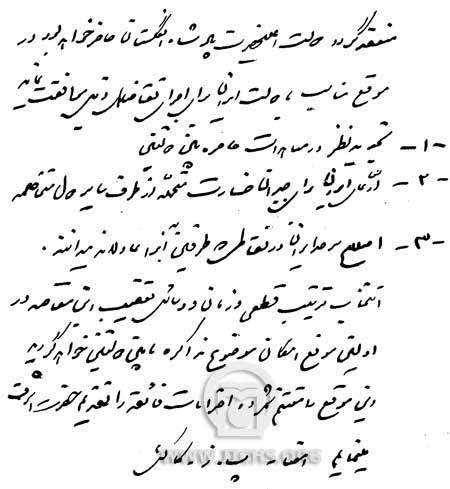 منعقد گردد دولت اعلیحضرت پادشاه انگلستان حاضر خواهد بود در
موقع مناسب با دولت ایران برای اجرای تقاضاهای ذیل موافقت نماید
-۱- تجدید نظر در معاهدات حاضره بین دولتین
-۲- ادعای ایران برای جبران خسارت متحمله از طرف سایر دول متخاصمه
-۳- اصلاح سرحد ایران در نقاطی که طرفین آنرا عادلانه بدانند.
انتخاب ترتیب قطعی و زمان و وسائل تعقیب این مقاصد در
اولین موقع امکان موضوع مذاکره مابین دولتین خواهد گردید
این موقع را مغتنم شمرده احترامات فائقه را تقدیم حضرت اشرف
مینمایم امضاء پ. ز. کاکس
WWW.IICHS.ORG